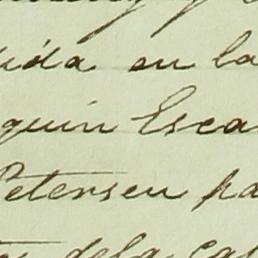 ida en la
quin Esca
Petersen pa
dela cal